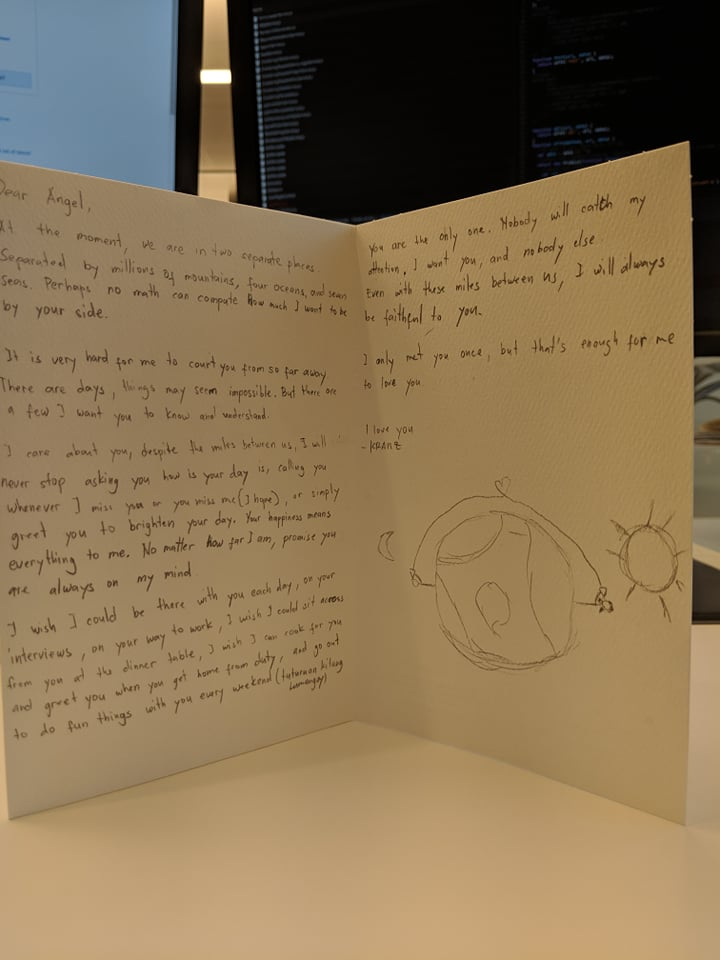 Dear Angel,
At the moment, we are in two separate places.
Separated by millions of mountains, four oceans, and seven
seas. Perhaps no math can compute how much I want to be
by your side.
It is very hard for me to court you from so far away.
There are days, things may seem impossible. But there are
a few I want you to know and understand.
I care about you, despite the miles between us, I will
never stop asking you how is your day is, calling you
whenever I miss you or you miss me (I hope), or simply
greet you to brighten your day. Your happiness means
everything to me. No matter how far I am, promise you
are always on my mind.
I wish I could be there with you each day, on your
interviews, on your way to work, I wish I could sit across
from you at the dinner table, I wish I can cook for you
and greet you when you get home from duty, and go out
to do fun things with you every weekend (tuturuan kitang
lumangoy)
you are the only one. Nobody will catch my
attention. I want you, and nobody else.
Even with these miles between us, I will always
be faithful to you.
I only met you once, but that's enough for me
to love you.
I love you
- KRANZ